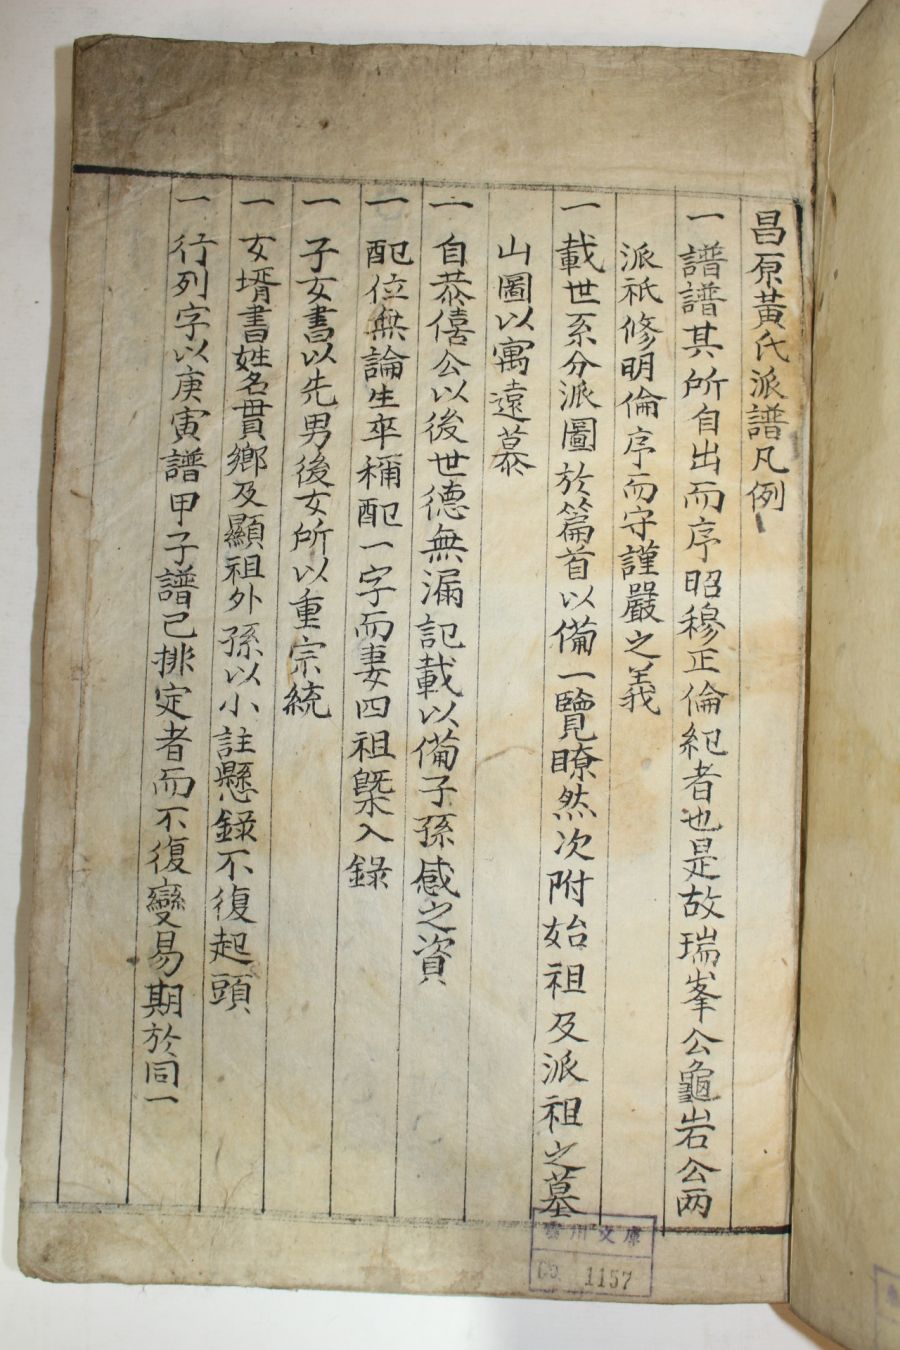 昌原黃氏派譜凡例
一 譜譜其所自出而序昭穆正倫紀者也是故瑞峯公龜岩公兩
派祇修明倫序而守謹嚴之義
一 載世系分派圖於篇首以備一覽瞭然次附始祖及派祖之墓
山圖以寓遠慕
一 自恭僖公以後世德無漏記載以備子孫感之資
一 配位無論生卒稱配一字而妻四祖槩入錄
一 子女書以先男後女所以重宗統
一 女壻書姓名貫鄉及顯祖外孫以小註懸錄不復起頭
一 行列字以庚寅譜甲子譜已排定者而不復變易期於同一
州文庫
1157